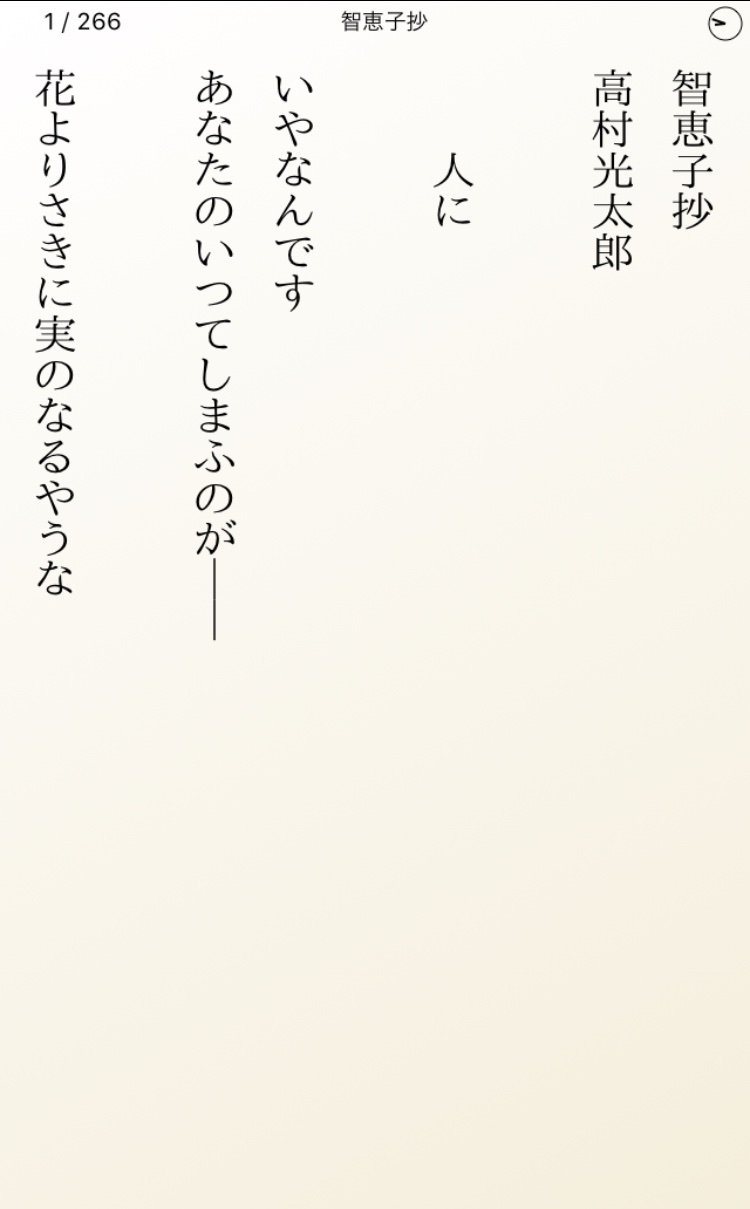 1 / 266
智恵子抄
智恵子抄
高村光太郎
人に
いやなんです
あなたのいつてしまふのが――
花よりさきに実のなるやうな